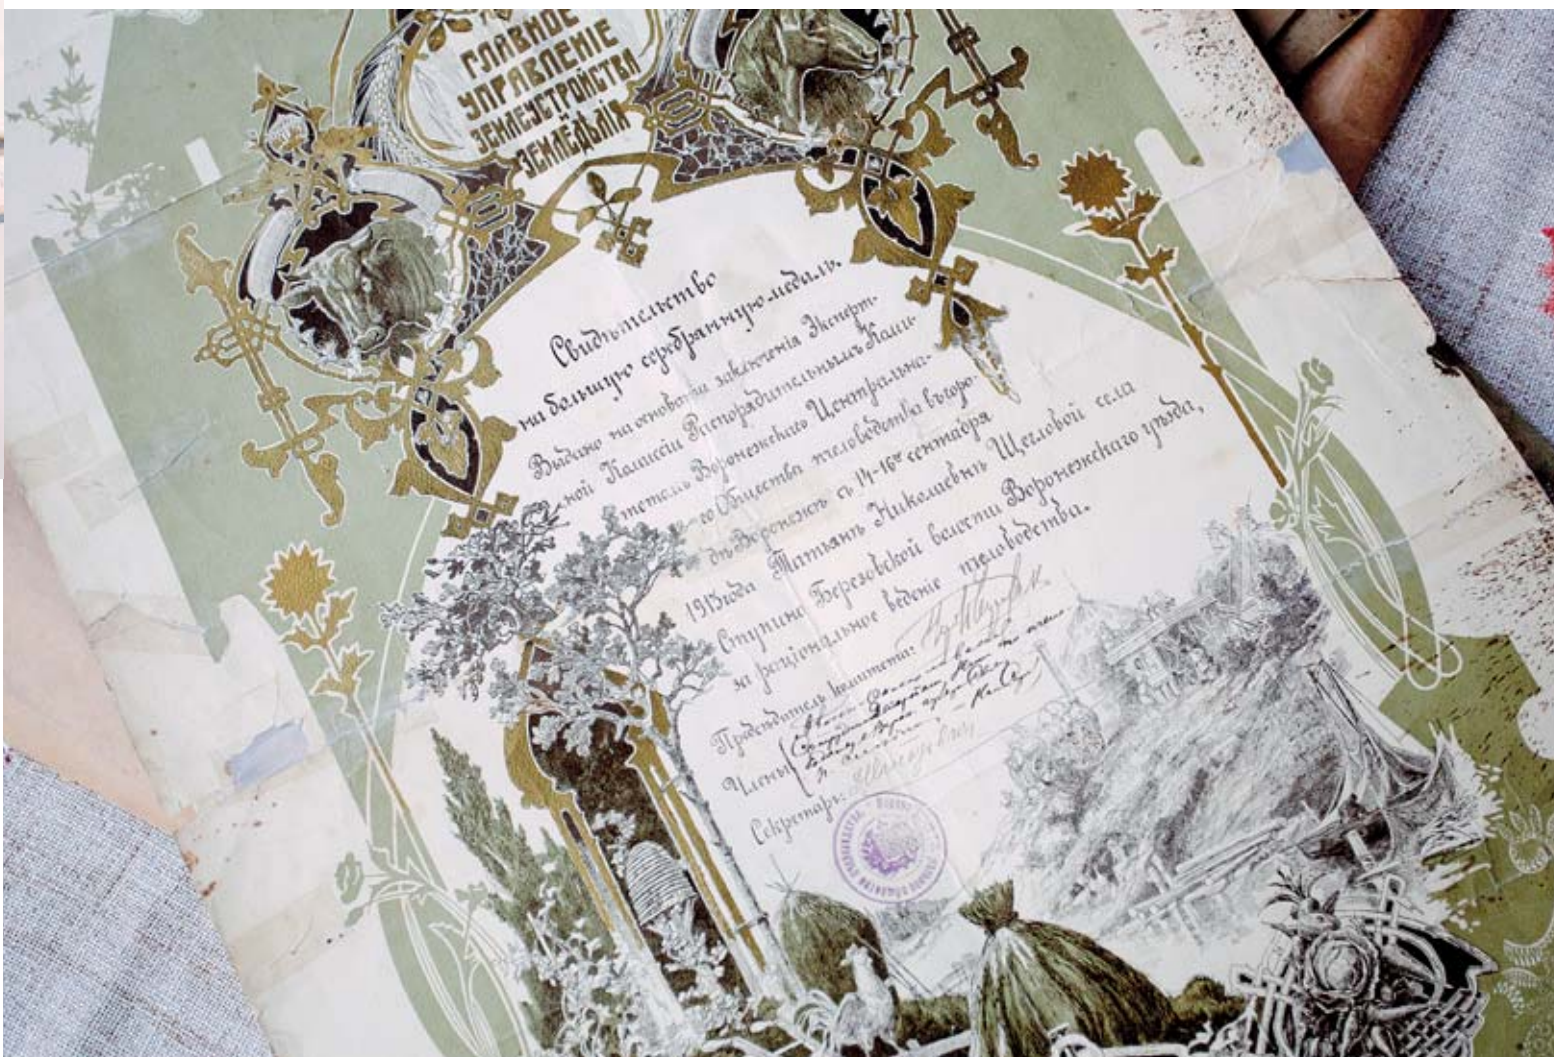 ГЛАВНОЕ
УПРАВЛЕНІЕ
ЗЕМЛЕУСТРОЙСТВА
ЗЕМЛЕДѢЛІЯ
Свидѣтельство
на большую серебряную медаль.
Выдано на основаніи заключенія Эксперт-
ной Комиссіи Распорядительнымъ Коми-
тетомъ Воронежскаго Центрально-
го Общества пчеловодства въ горо-
дѣ Воронежѣ съ 14-16го сентября
1913 года Татьянѣ Николаевнѣ Щегловой села
Ступино Березовской волости Воронежскаго уѣзда,
за раціональное веденіе пчеловодства.
Предсѣдатель Комитета:
Члены
Секретарь: